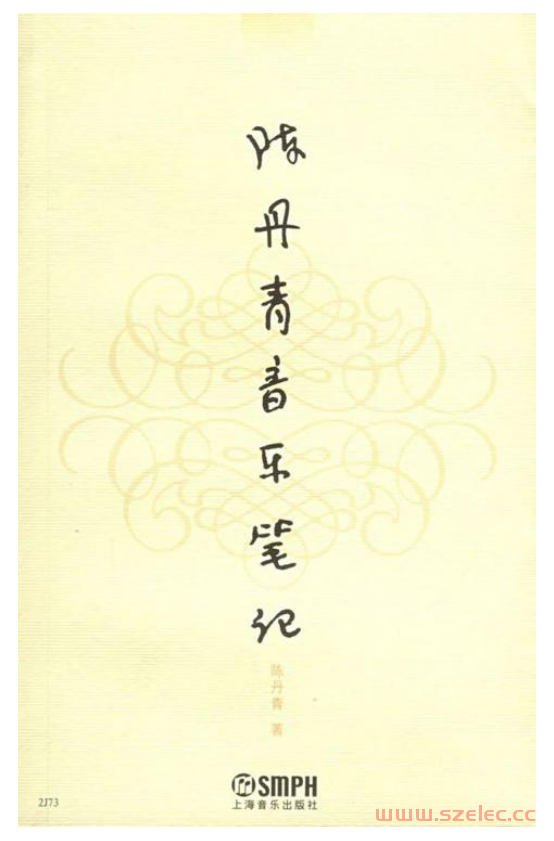 陈丹青音乐笔记
陈丹青 著
SMPH
上海音乐出版社
2J73
www.szelec.cc